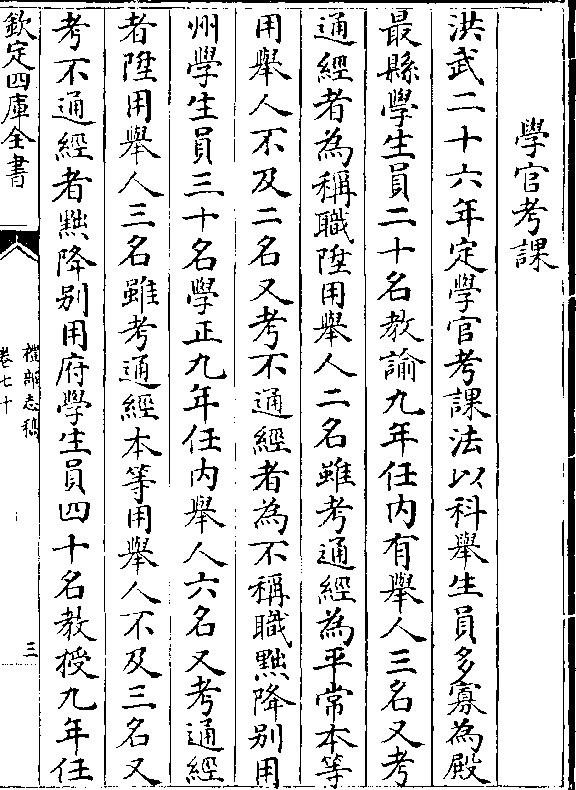 學官考課
洪武二十六年定學官考課法以科舉生員多寡為殿
最縣學生員二十名教諭九年任内有舉人三名又考
通經者為稱職陞用舉人二名雖考通經為平常本等
用舉人不及二名又考不通經者為不稱職黜降别用
州學生員三十名學正九年任内舉人六名又考通經
者陞用舉人三名雖考通經本等用舉人不及三名又
考不通經者黜降别用府學生員四十名教授九年任
欽定四庫全書
禮部志稿
卷七十
三